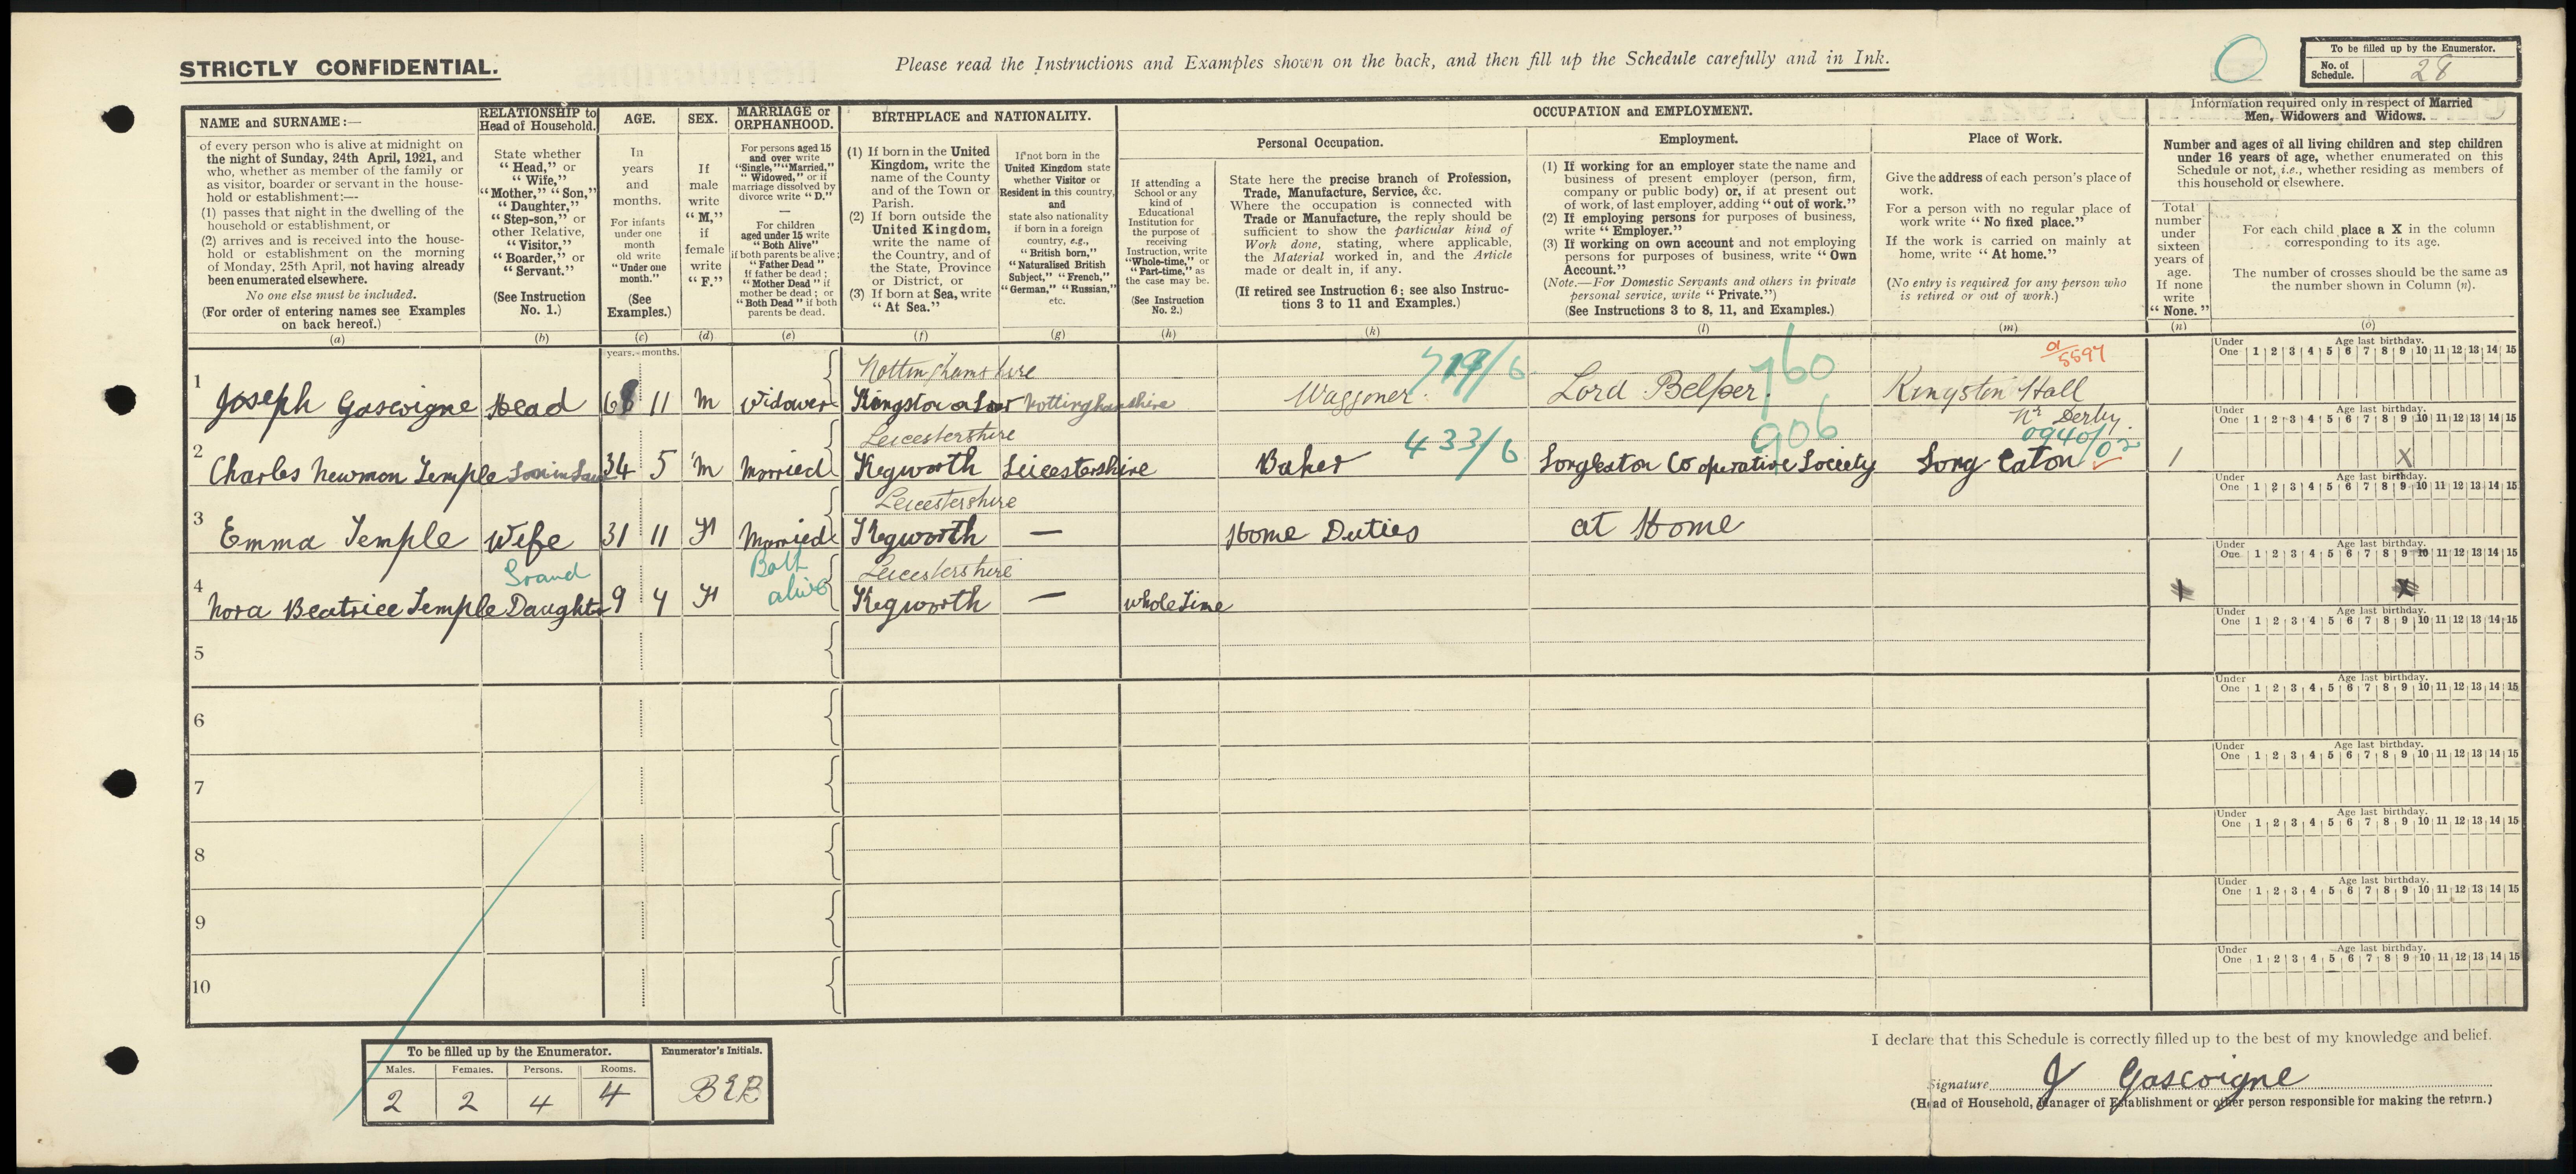 STRICTLY CONFIDENTIAL.
Please read the Instructions and Examples shown on the back, and then fill up the Schedule carefully and in Ink.
To be filled up by the Enumerator.
No. of Schedule.
28
NAME and SURNAME:—
of every person who is alive at midnight on
the night of Sunday, 24th April, 1921, and
who, whether as member of the family or
as visitor, boarder or servant in the house-
hold or establishment:—
(1) passes that night in the dwelling of the
household or establishment, or
(2) arrives and is received into the house-
hold or establishment on the morning
of Monday, 25th April, not having already
been enumerated elsewhere.
No one else must be included.
(For order of entering names see Examples
on back hereof.)
(a)
RELATIONSHIP to
Head of Household.
State whether
"Head," or
"Wife,"
"Mother," "Son,"
"Daughter,"
"Step-son," or
other Relative,
"Visitor,"
"Boarder," or
"Servant."
(See Instruction
No. 1.)
(b)
AGE.
In
years
and
months.
For infants
under one
month
old write
"Under one
month."
(See
Examples.)
(c)
SEX.
If
male
write
"M,"
if
female
write
"F."
(d)
MARRIAGE or
ORPHANHOOD.
For persons aged 15
and over write
"Single," "Married,"
"Widowed," or if
marriage dissolved by
divorce write "D."
—
For children
aged under 15 write
"Both Alive"
if both parents be alive;
"Father Dead"
if father be dead;
"Mother Dead" if
mother be dead; or
"Both Dead" if both
parents be dead.
(e)
BIRTHPLACE and NATIONALITY.
(1) If born in the United
Kingdom, write the
name of the County
and of the Town or
Parish.
(2) If born outside the
United Kingdom,
write the name of
the Country, and of
the State, Province
or District, or
(3) If born at Sea, write
"At Sea."
(f)
If not born in the
United Kingdom state
whether Visitor or
Resident in this country,
and
state also nationality
if born in a foreign
country, e.g.,
"British born,"
"Naturalised British
Subject," "French,"
"German," "Russian,"
etc.
(g)
OCCUPATION and EMPLOYMENT.
Personal Occupation.
If attending a
School or any
kind of
Educational
Institution for
the purpose of
receiving
Instruction, write
"Whole-time," or
"Part-time," as
the case may be.
(See Instruction
No. 2.)
(h)
State here the precise branch of Profession,
Trade, Manufacture, Service, &c.
Where the occupation is connected with
Trade or Manufacture, the reply should be
sufficient to show the particular kind of
Work done, stating, where applicable,
the Material worked in, and the Article
made or dealt in, if any.
(If retired see Instruction 6; see also Instruc-
tions 3 to 11 and Examples.)
(k)
Employment.
(1) If working for an employer state the name and
business of present employer (person, firm,
company or public body) or, if at present out
of work, of last employer, adding "out of work."
(2) If employing persons for purposes of business,
write "Employer."
(3) If working on own account and not employing
persons for purposes of business, write "Own
Account."
(Note.—For Domestic Servants and others in private
personal service, write "Private.")
(See Instructions 3 to 8, 11, and Examples.)
(l)
Place of Work.
Give the address of each person's place of
work.
For a person with no regular place of
work write "No fixed place."
If the work is carried on mainly at
home, write "At home."
(No entry is required for any person who
is retired or out of work.)
(m)
Information required only in respect of Married
Men, Widowers and Widows.
Number and ages of all living children and step children
under 16 years of age, whether enumerated on this
Schedule or not, i.e., whether residing as members of
this household or elsewhere.
Total
number
under
sixteen
years of
age.
If none
write
"None."
(n)
For each child place a X in the column
corresponding to its age.
The number of crosses should be the same as
the number shown in Column (n).
(o)
years. months.
Under One
Age last birthday.
1 2 3 4 5 6 7 8 9 10 11 12 13 14 15
Nottinghamshire 719/6 760
1 Joseph Gascoigne Head 68 11 M Widower Kingston on Soar Nottinghamshire Waggoner Lord Belper. Kingston Hall
Nr Derby.
Leicestershire 433/6 906 0940/02
2 Charles Newmon Temple Son in Law 34 5 M Married Kegworth Leicestershire Baker Longeaton Co operative Society Long Eaton 1 X
Leicestershire
3 Emma Temple Wife 31 11 F Married Kegworth — Home Duties at Home
Grand Both alive Leicestershire
4 Nora Beatrice Temple Daughter 9 4 F Kegworth — whole Time
5
6
7
8
9
10
To be filled up by the Enumerator.
Males. Females. Persons. Rooms.
2 2 4 4
Enumerator's Initials.
BEB
I declare that this Schedule is correctly filled up to the best of my knowledge and belief.
Signature J Gascoigne
(Head of Household, Manager of Establishment or other person responsible for making the return.)